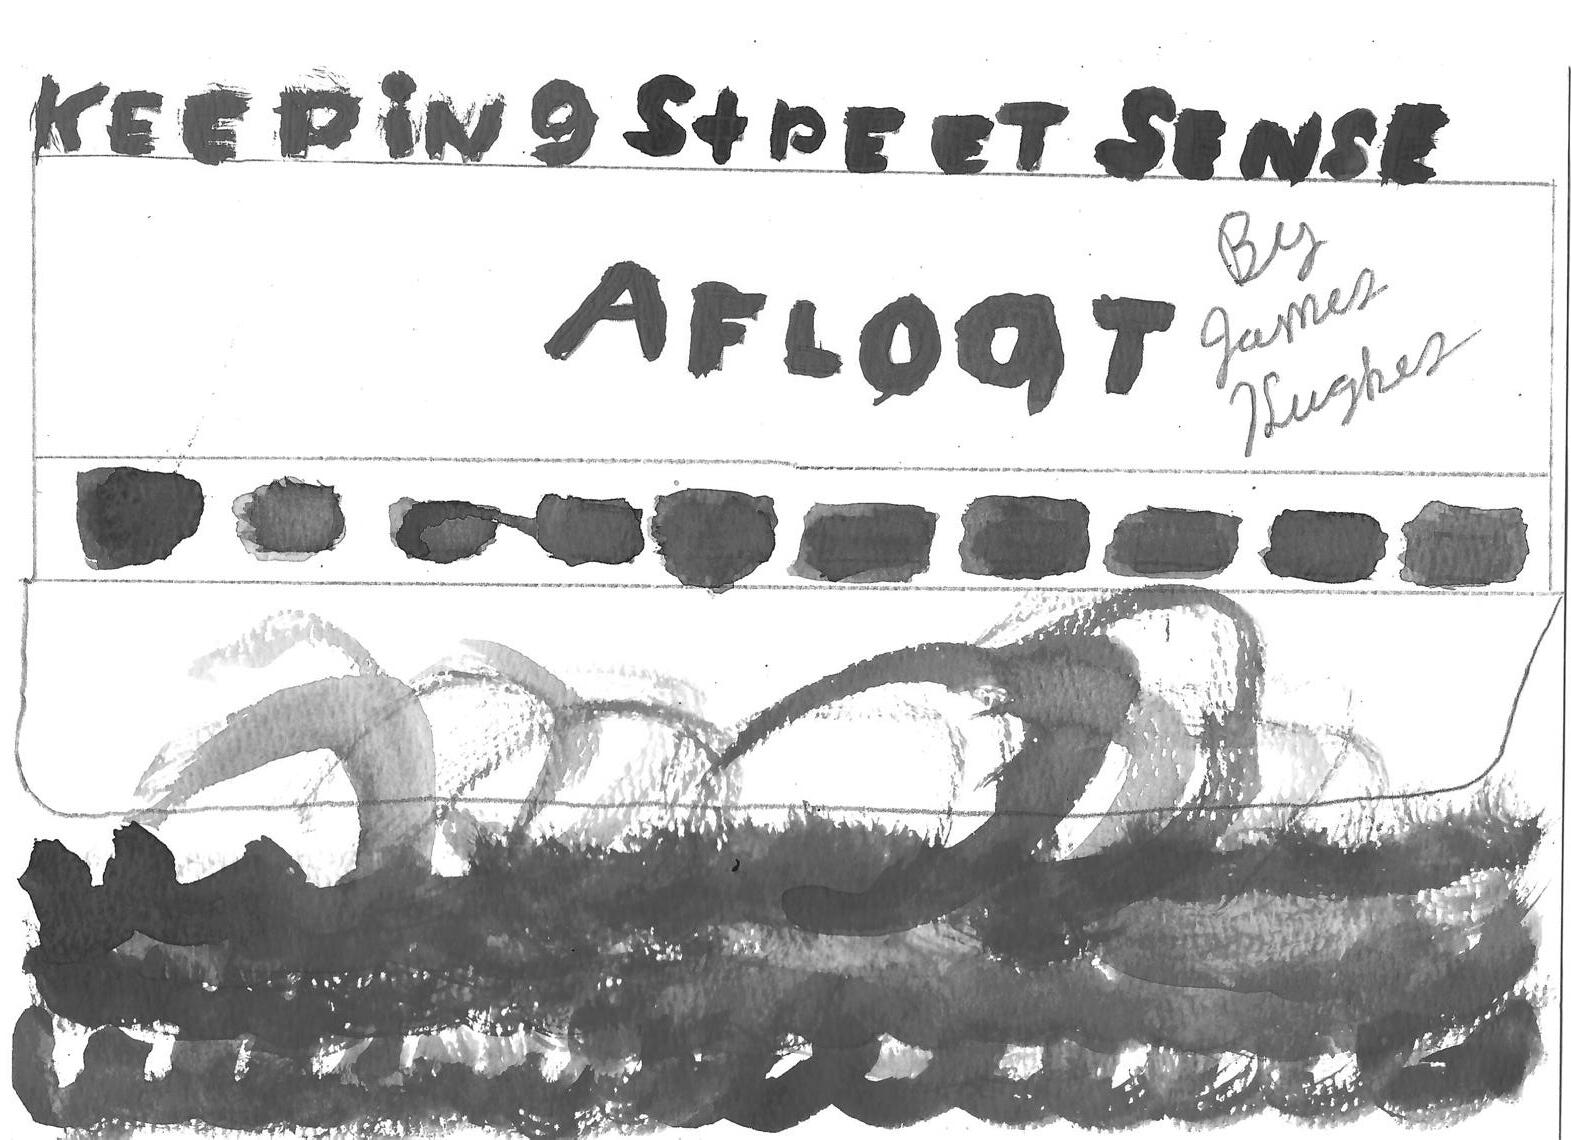 KEEPiNg StREET SENSE
AFLOaT
By
James
Hughes